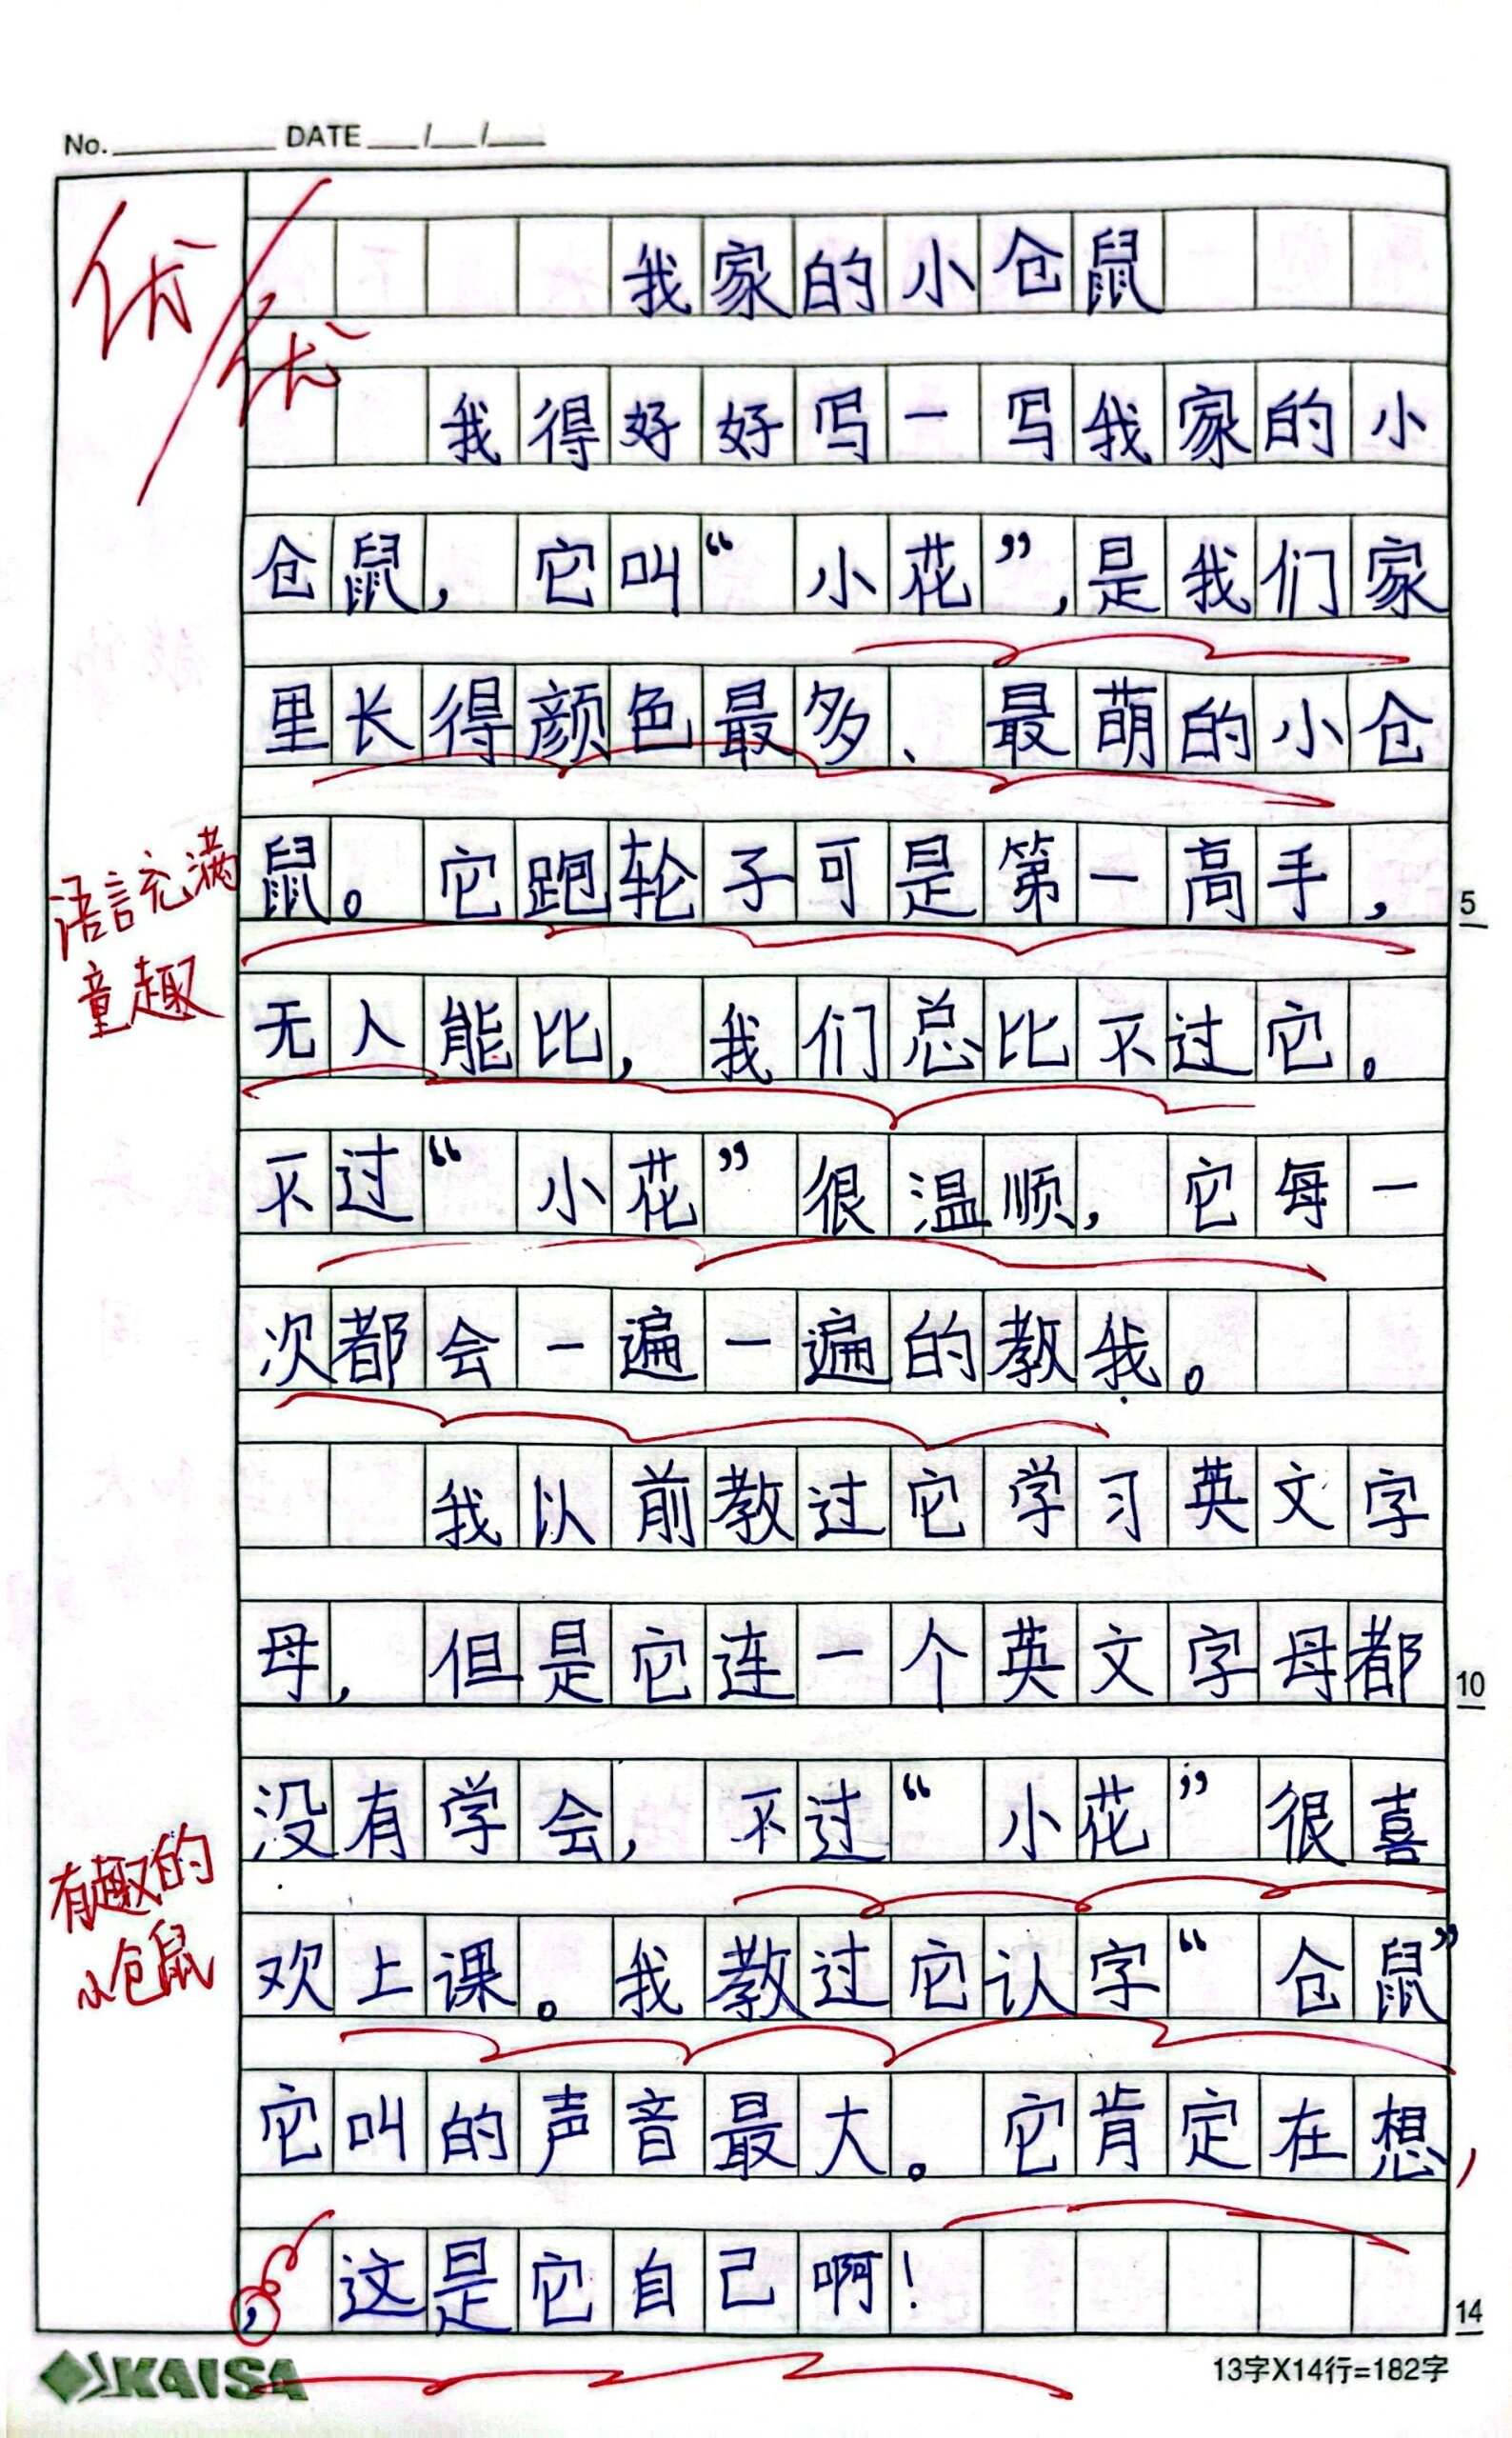 No. DATE / /
优/优
我家的小仓鼠
我得好好写一写我家的小
仓鼠,它叫“小花”,是我们家
里长得颜色最多、最萌的小仓
鼠。它跑轮子可是第一高手,
5
无人能比,我们总比不过它。
不过“小花”很温顺,它每一
次都会一遍一遍的教我。
语言充满
童趣
我以前教过它学习英文字
母,但是它连一个英文字母都
10
没有学会,不过“小花”很喜
欢上课。我教过它认字“仓鼠”
它叫的声音最大。它肯定在想,
,这是它自己啊!
14
有趣的
小仓鼠
KAISA
13字X14行=182字